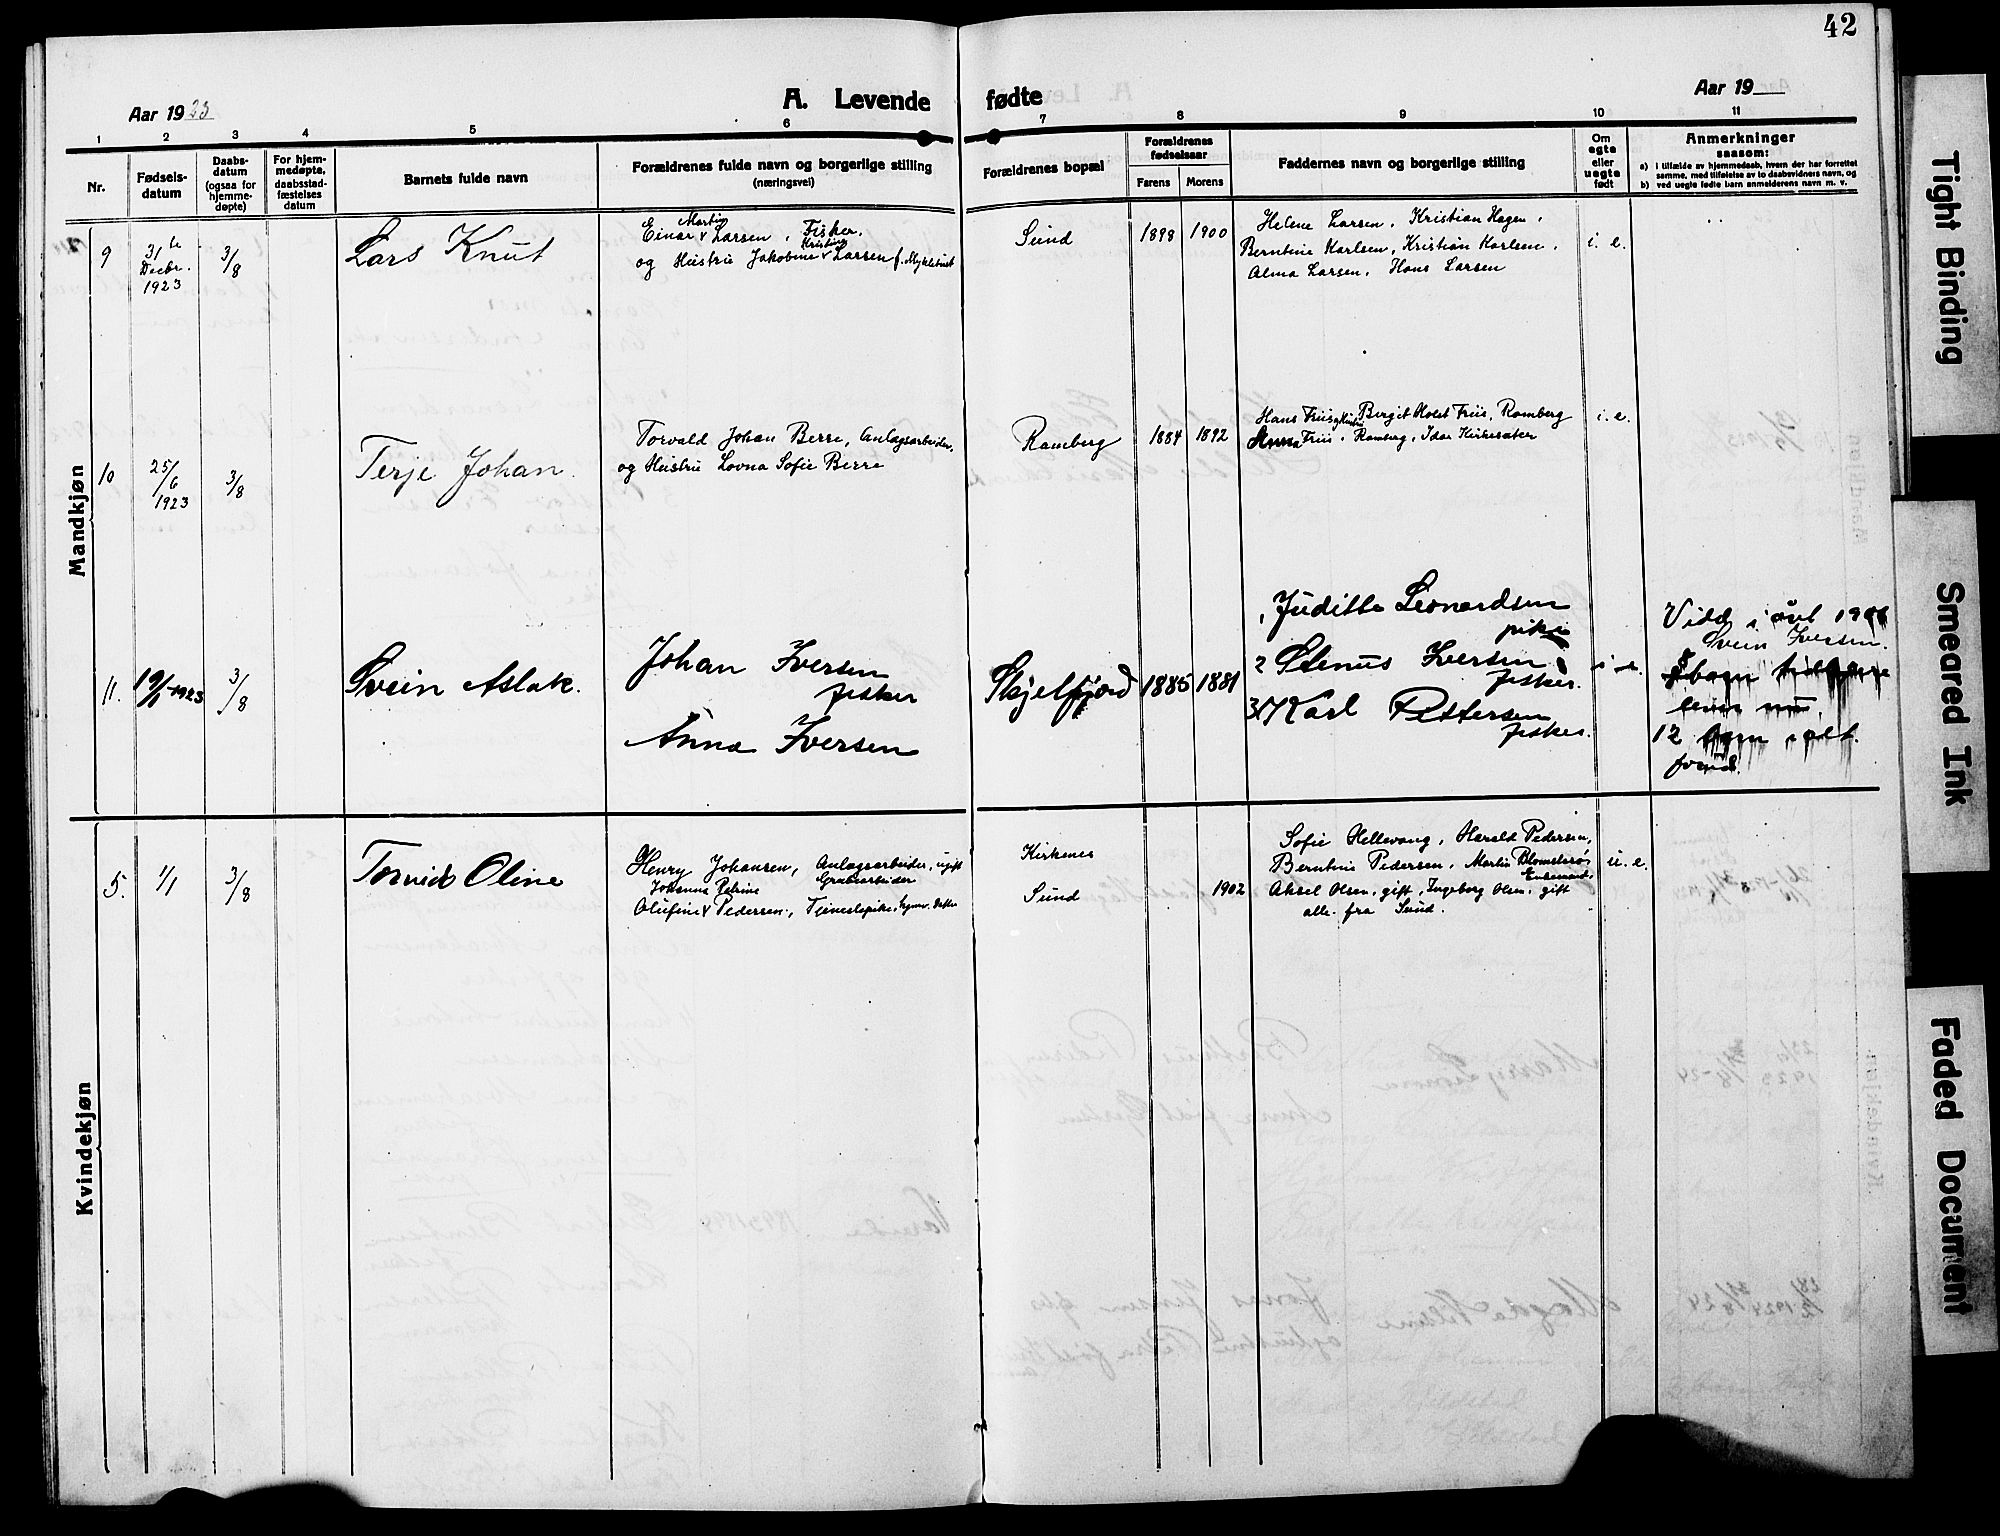 42
Aar 1923
A. Levende fødte
Aar 19
1 2 3 4 5 6 7 8 9 10 11
Nr.
Fødsels-
datum
Daabs-
datum
(ogsaa for
hjemme-
døpte)
For hjem-
medøpte,
daabsstad-
fæstelses
datum
Barnets fulde navn
Forældrenes fulde navn og borgerlige stilling
(næringsvei)
Forældrenes bopæl
Forældrenes
fødselsaar
Farens Morens
Faddernes navn og borgerlige stilling
Om
egte
eller
uegte
født
Anmerkninger
saasom:
a) i tilfælde av hjemmedaab, hvem der har forrettet
samme, med tilføielse av to daabsvidners navn, og
b) ved uegte fødte barn anmelderens navn m. v.
Mandkjøn
9
31te
Decbr.
1923
3/8
Lars Knut
Martin
Einar v Larsen, Fisker.
Kristine
og Hustru Jakobine v Larsen f. Myklebust
Sund
1898 1900
Helene Larsen, Kristian Hagen,
Berntine Karlsen, Kristian Karlsen,
Alma Larsen, Hans Larsen
i. e.
10
25/6
1923
3/8
Terje Johan
Torvald Johan Berre, Anlagsarbeider,
og Hustru Lovna Sofie Berre
Ramberg
1884 1892
Hans Friis, Birgit Holst Friis, Ramberg
Anna Friis, Ramberg, Idar Kirkesæter
i. e.
11.
1923
3/8
Svein Aslak.
Johan Iversen
fisker
Anna Iversen
Skjelfjord
1885 1881
1 Juditte Leonardsen
pike
2 Stenus Iversen
fisker.
3 Karl Pettersen
fisker.
i e.
Vidd i året
Svein Iversen.
12 barn i alt
Kvindekjøn
5.
1/1
3/8
Torvid Oline
Henry Johansen, Anlagsarbeider, ugift
Johanna Petrine Grubearbeider
Olufine v Pedersen, Tjenestepike,
Kirkenes
Sund
1902
Sofie Hellevang, Harald Pedersen,
Berntine Pedersen, Martin Blomsterø,
Enkemand,
Aksel Olsen, gift, Ingeborg Olsen, gift
alle fra Sund.
u. e.
Tight Binding
Smeared Ink
Faded Document